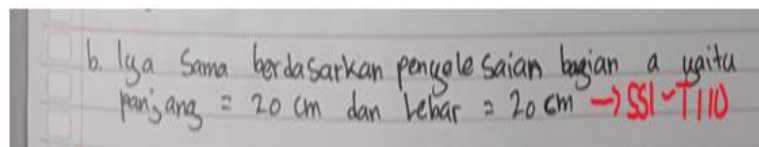 b. Iya Sama berdasarkan penyelesaian bagian a yaitu
panjang = 20 cm dan Lebar = 20 cm → SSI-T11D